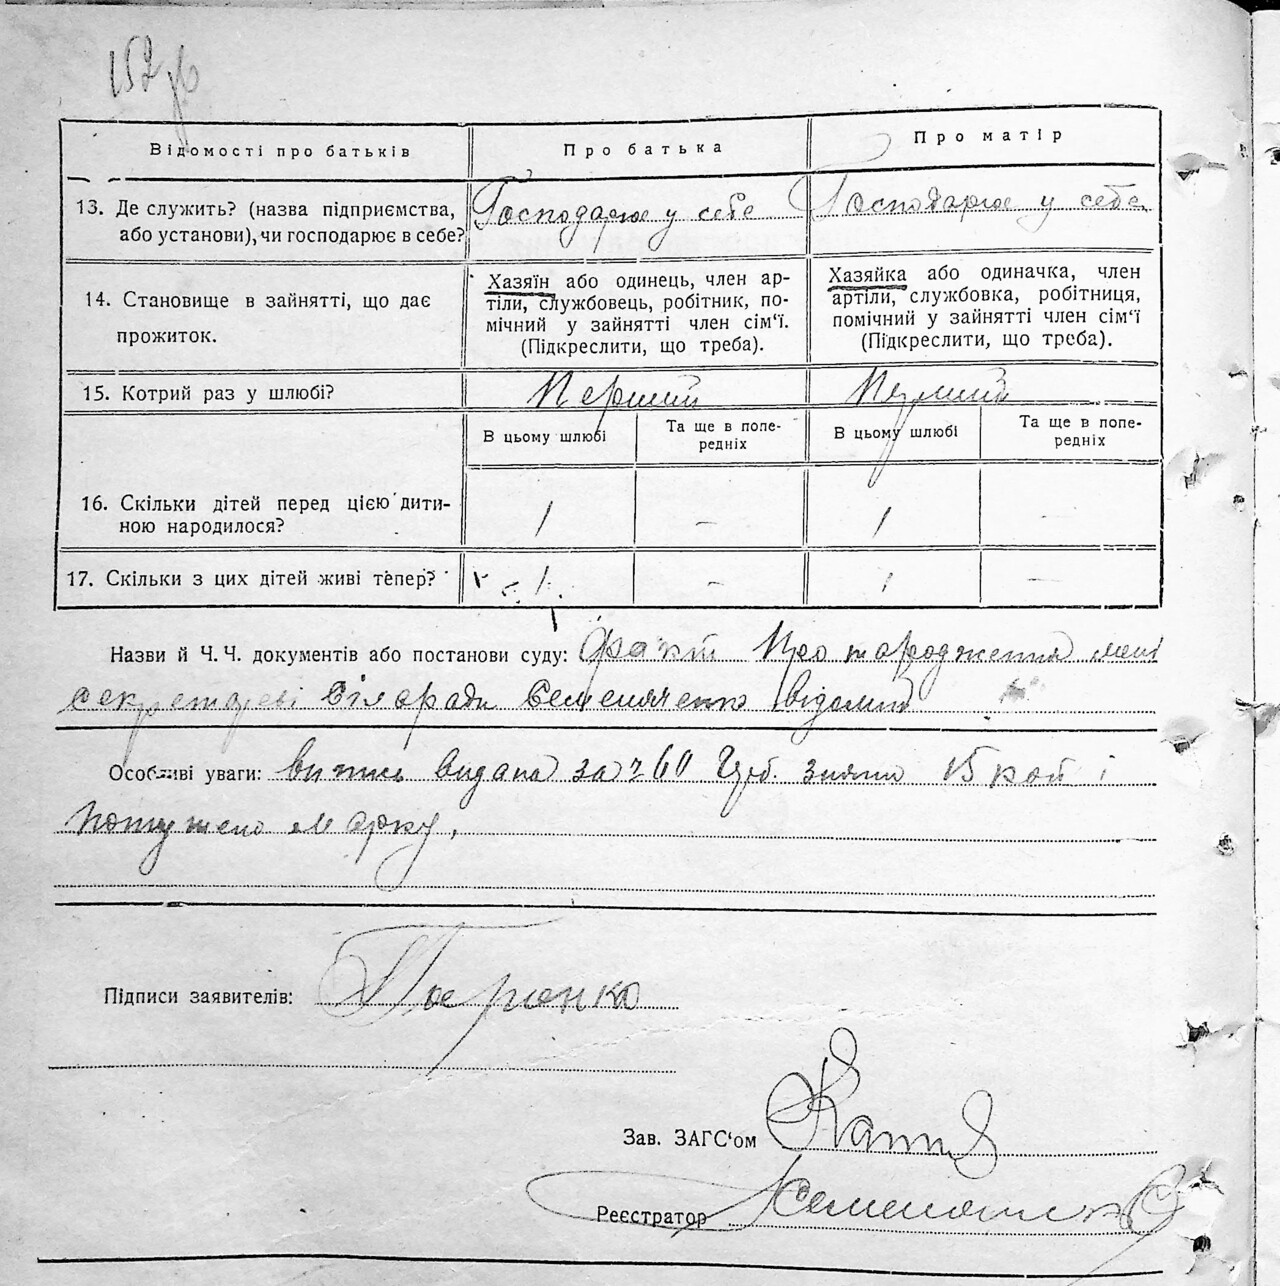 152 зв
Відомості про батьків Про батька Про матір
13. Де служить? (назва підприємства, або установи), чи господарює в себе? Господарює у себе Господарює у себе
14. Становище в зайнятті, що дає прожиток.
Хазяїн або одинець, член ар-
тіли, службовець, робітник, по-
мічний у зайнятті член сім‘ї.
(Підкреслити, що треба).
Хазяйка або одиначка, член
артіли, службовка, робітниця,
помічний у зайнятті член сім‘ї
(Підкреслити, що треба).
15. Котрий раз у шлюбі? Перший Перший
В цьому шлюбі Та ще в попе-
редніх В цьому шлюбі Та ще в попе-
редніх
16. Скільки дітей перед цією дити-
ною народилося? 1 – 1 –
17. Скільки з цих дітей живі тепер? 1 – 1 –
Назви й Ч. Ч. документів або постанови суду: факт про народження мені
секретареві Сілради Семеняченко відомий
Особливі уваги: випись видана за 260 знято 15 коп і
погашено марку,
Підписи заявителів:
Зав. ЗАГС‘ом
Реєстратор